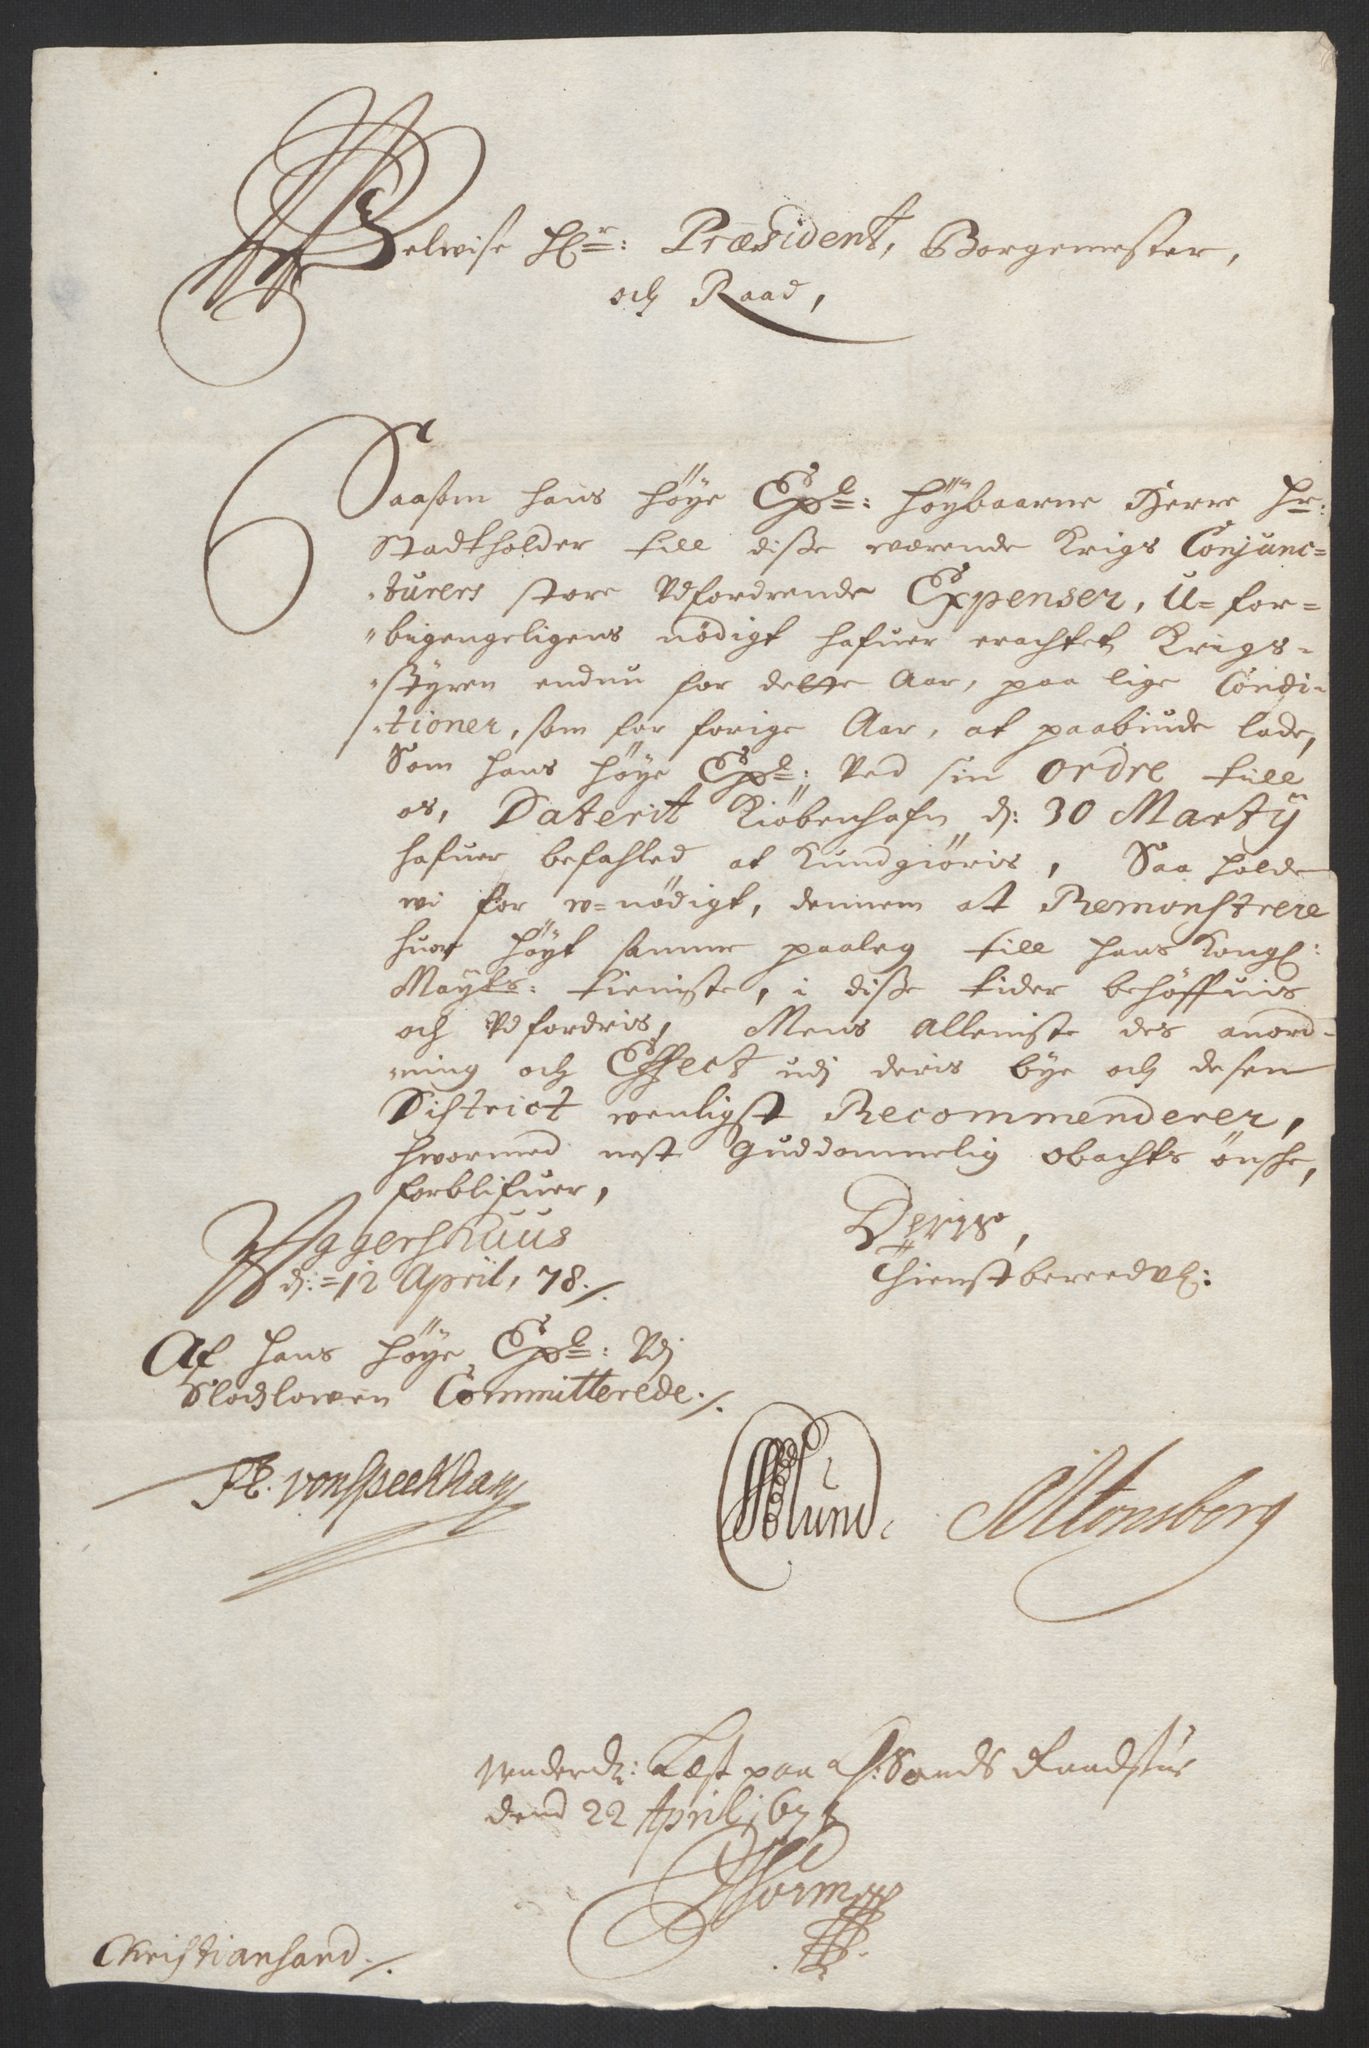 Velwise Hr: Præsident, Borgemester,
och Raad,
Saasom hans høye Expl: høybaarne Herre Hr:
Stadtholder till disse wærende Krigs Conjunc-
-turers store Vdfordrende Expenser, U=for-
-bigengeligens nödigt hafuer erachtet Krigs-
-styren endnu for dette Aar, paa lige Condi-
-tioner, som for forige Aar, at paabiude lade,
Som hans høye Expl: Ved sin ordre till
os, Daterit Kiöbenhafn d: 30 Martÿ
hafuer befahled at Kundgiöris, Saa holde
wi for w=nödigt, dennem at Remonstrere
huor høyt samme paaleg till hans Kongl:
Maÿts: tieniste, i disse tider behöffuis
och Vdfordris, Mens alleniste des anord-
-ning och Effect udj deris bye och desen
District wenligst Recommenderer,
hwormed nest Guddommelig obachts önske,
forblifuer,
Aggershuus
d: 12 April, 78./.
Deris,
Thienstbereedvl:
Af hans høye Expl: Vdj
Slodzlowen Committerede./.
H. von Speckhan
Lund.
Tonsberg
Vnderd: Læst paa Chr:Sands Raadstue
dend 22 April 1678
Christiansand./.